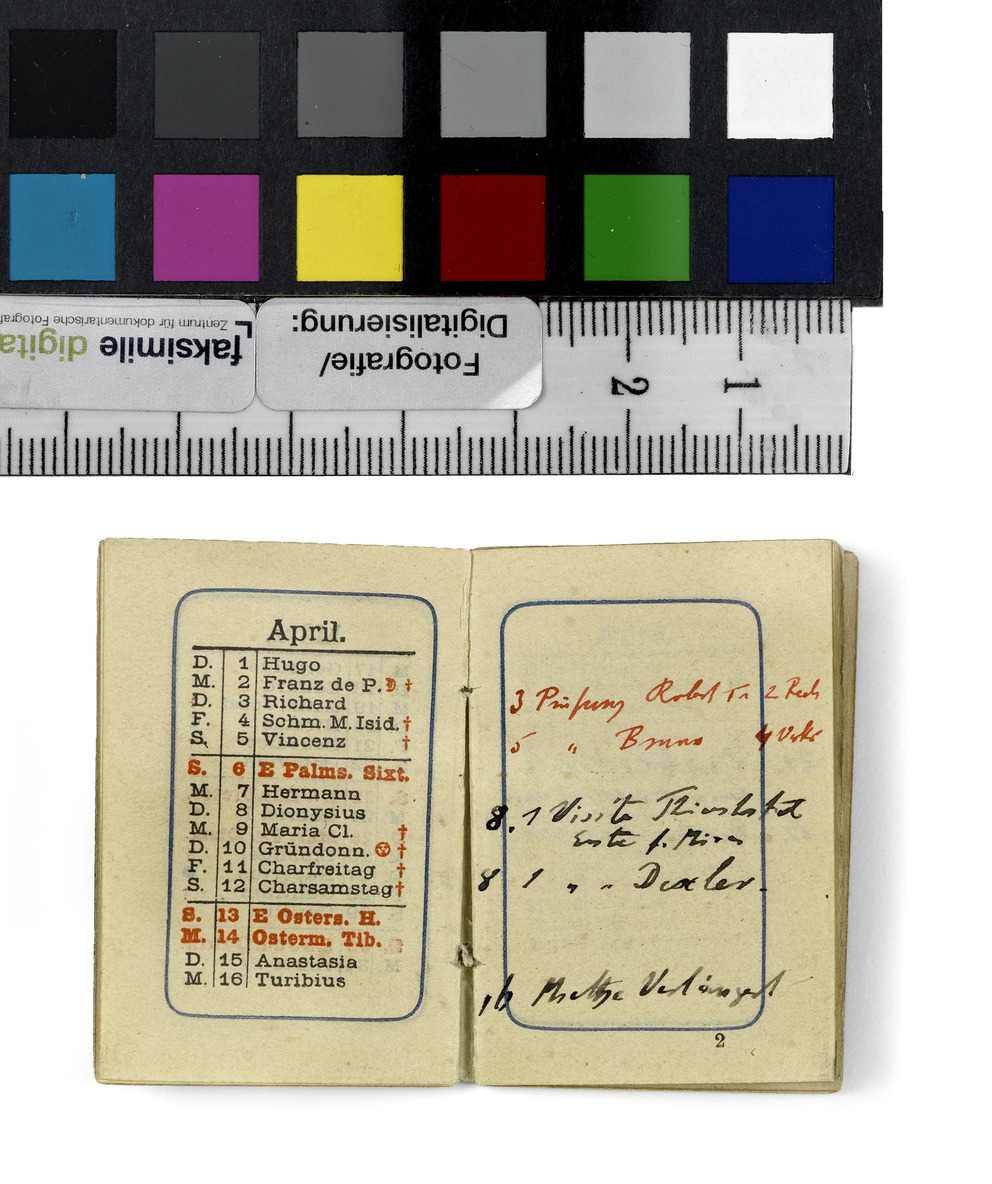 Zentrum für dokumentarische Fotograf
faksimile digita
Fotografie/
Digitalisierung:
2 1
April.
D. 1 Hugo
M. 2 Franz de P. ☽ †
D. 3 Richard
F. 4 Schm. M. Isid. †
S. 5 Vincenz †
S. 6 E Palms. Sixt.
M. 7 Hermann
D. 8 Dionysius
M. 9 Maria Cl. †
D. 10 Gründonn. †
F. 11 Charfreitag †
S. 12 Charsamstag †
S. 13 E Osters. H.
M. 14 Osterm. Tib.
D. 15 Anastasia
M. 16 Turibius
3 Prüfung Robert
5 " Bruno
8. 1 Visite
Erste f.
8 1 " " Dexler.
16
2